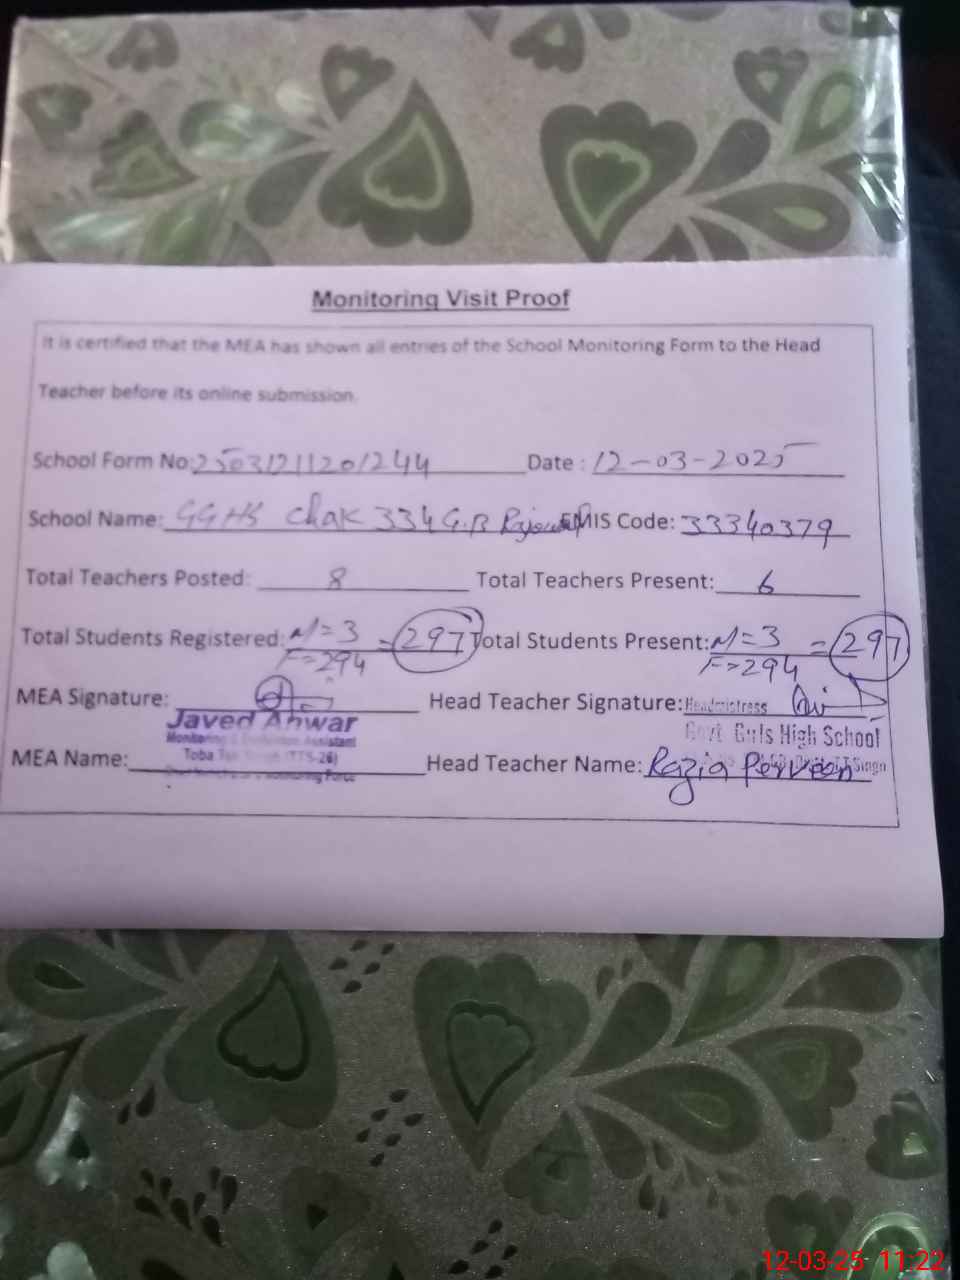 Monitoring Visit Proof
It is certified that the MEA has shown all entries of the School Monitoring Form to the Head
Teacher before its online submission.
School Form No: 25031211201244 Date : 12-03-2025
School Name: GGHS Chak 334 G.B EMIS Code: 33340379
Total Teachers Posted: 8 Total Teachers Present: 6
Total Students Registered: M=3 F=294 = 297 Total Students Present: M=3 F=294 = 297
MEA Signature: Head Teacher Signature: Headmistress
Javed Anwar Govt. Girls High School
Monitoring & Evaluation Assistant
Toba Tek Singh (TTS-26)
MEA Name: Head Teacher Name: Razia Perveen T.T.Singh
Monitoring Force
12-03-25 11:22